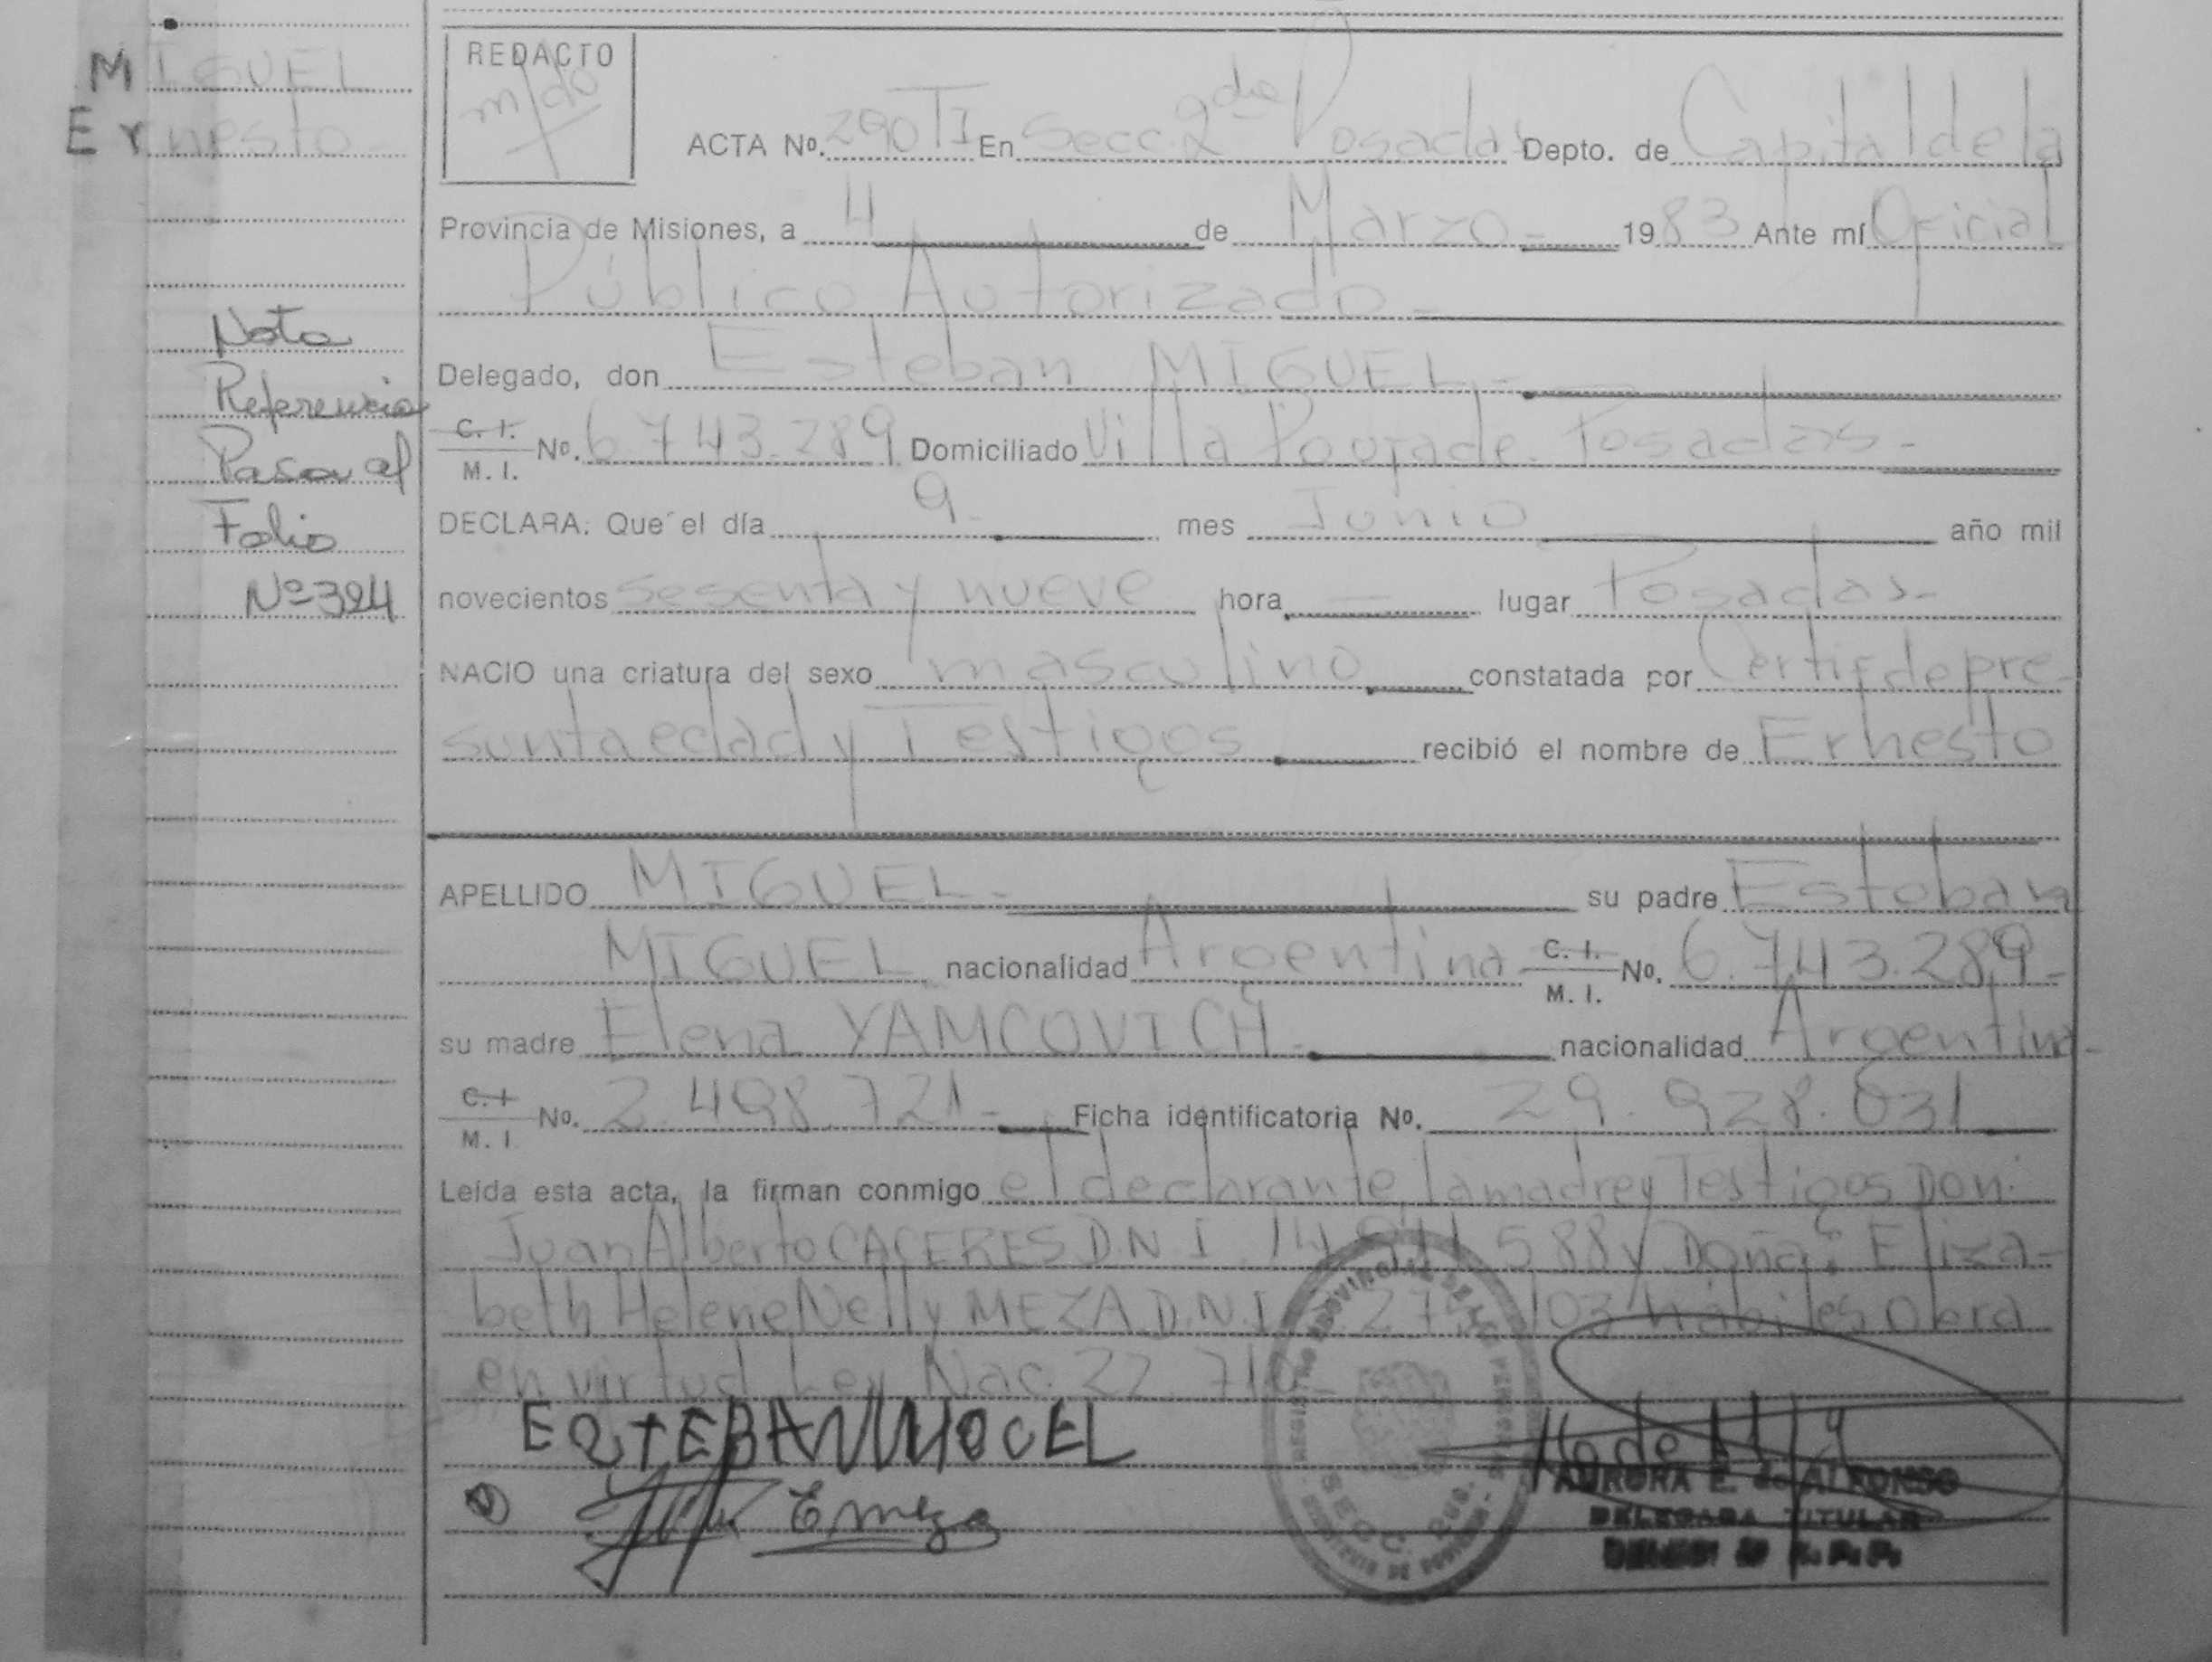 MIGUEL
Ernesto -
Nota
Referencia
Pasa al
Folio
Nº 324
REDACTO
ACTA Nº. 290 TI En Secc. 2da Posadas Depto. de Capital de la
Provincia de Misiones, a 4 de Marzo - 1983 Ante mí Oficial
Público Autorizado -
Delegado, don Esteban MIGUEL -
C. I.
M. I. Nº. 6.743.289 Domiciliado Villa Poujade - Posadas -
DECLARA: Que el día 9 - mes Junio año mil
novecientos sesenta y nueve hora — lugar Posadas -
NACIO una criatura del sexo masculino constatada por Certif de pre-
sunta edad y Testigos recibió el nombre de Ernesto
APELLIDO MIGUEL - su padre Esteban
MIGUEL nacionalidad Argentina C. I.
M. I. Nº. 6.743.289 -
su madre Elena YAMCOVICH - nacionalidad Argentina -
C. I
M. I. Nº. 2.498.721 - Ficha identificatoria Nº. 29.928.031
Leída esta acta, la firman conmigo el declarante, la madre y Testigos Don:
Juan Alberto CACERES D.N.I. 588 y Doña: Eliza-
beth Helene Nelly MEZA D.N.I. 103 hábiles Obra
en virtud Ley Nac. 22.710 -
EQTEBAN MIOCEL
E Meza
REGISTRO PROVINCIAL DE LAS PERSONAS
SECC. 2da.
AURORA E. de ALFONSO
DELEGADA TITULAR